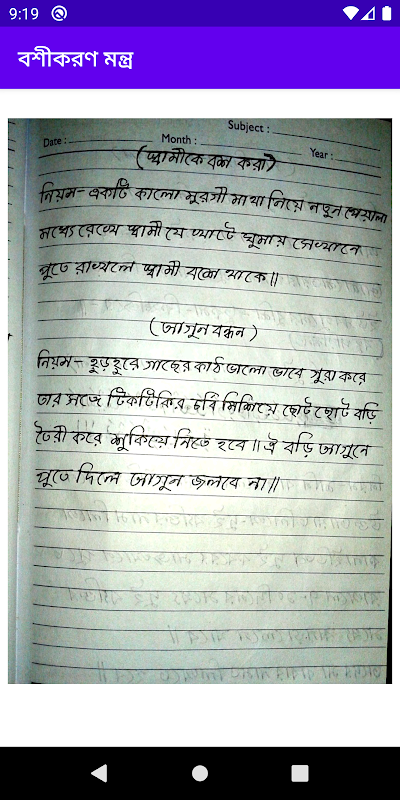 9:19
বশীকরণ মন্ত্র
Subject :
Date : Month : Year :
(স্বামীকে বশ করা)
নিয়ম- একটি কালো মুরগী মাথা নিয়ে নতুন পেয়ালা
মধ্যে রেখে স্বামী যে খাটে ঘুমায় সেখানে
পুতে রাখলে স্বামী বশে থাকে॥
(আগুন বন্ধন)
নিয়ম- হুড়হুরে গাছের কাঠ ভালো ভাবে গুরা করে
তার সঙ্গে টিকটিকির চর্বি মিশিয়ে ছোট ছোট বড়ি
তৈরী করে শুকিয়ে নিতে হবে॥ ঐ বড়ি আগুনে
পুতে দিলে আগুন জলবে না॥